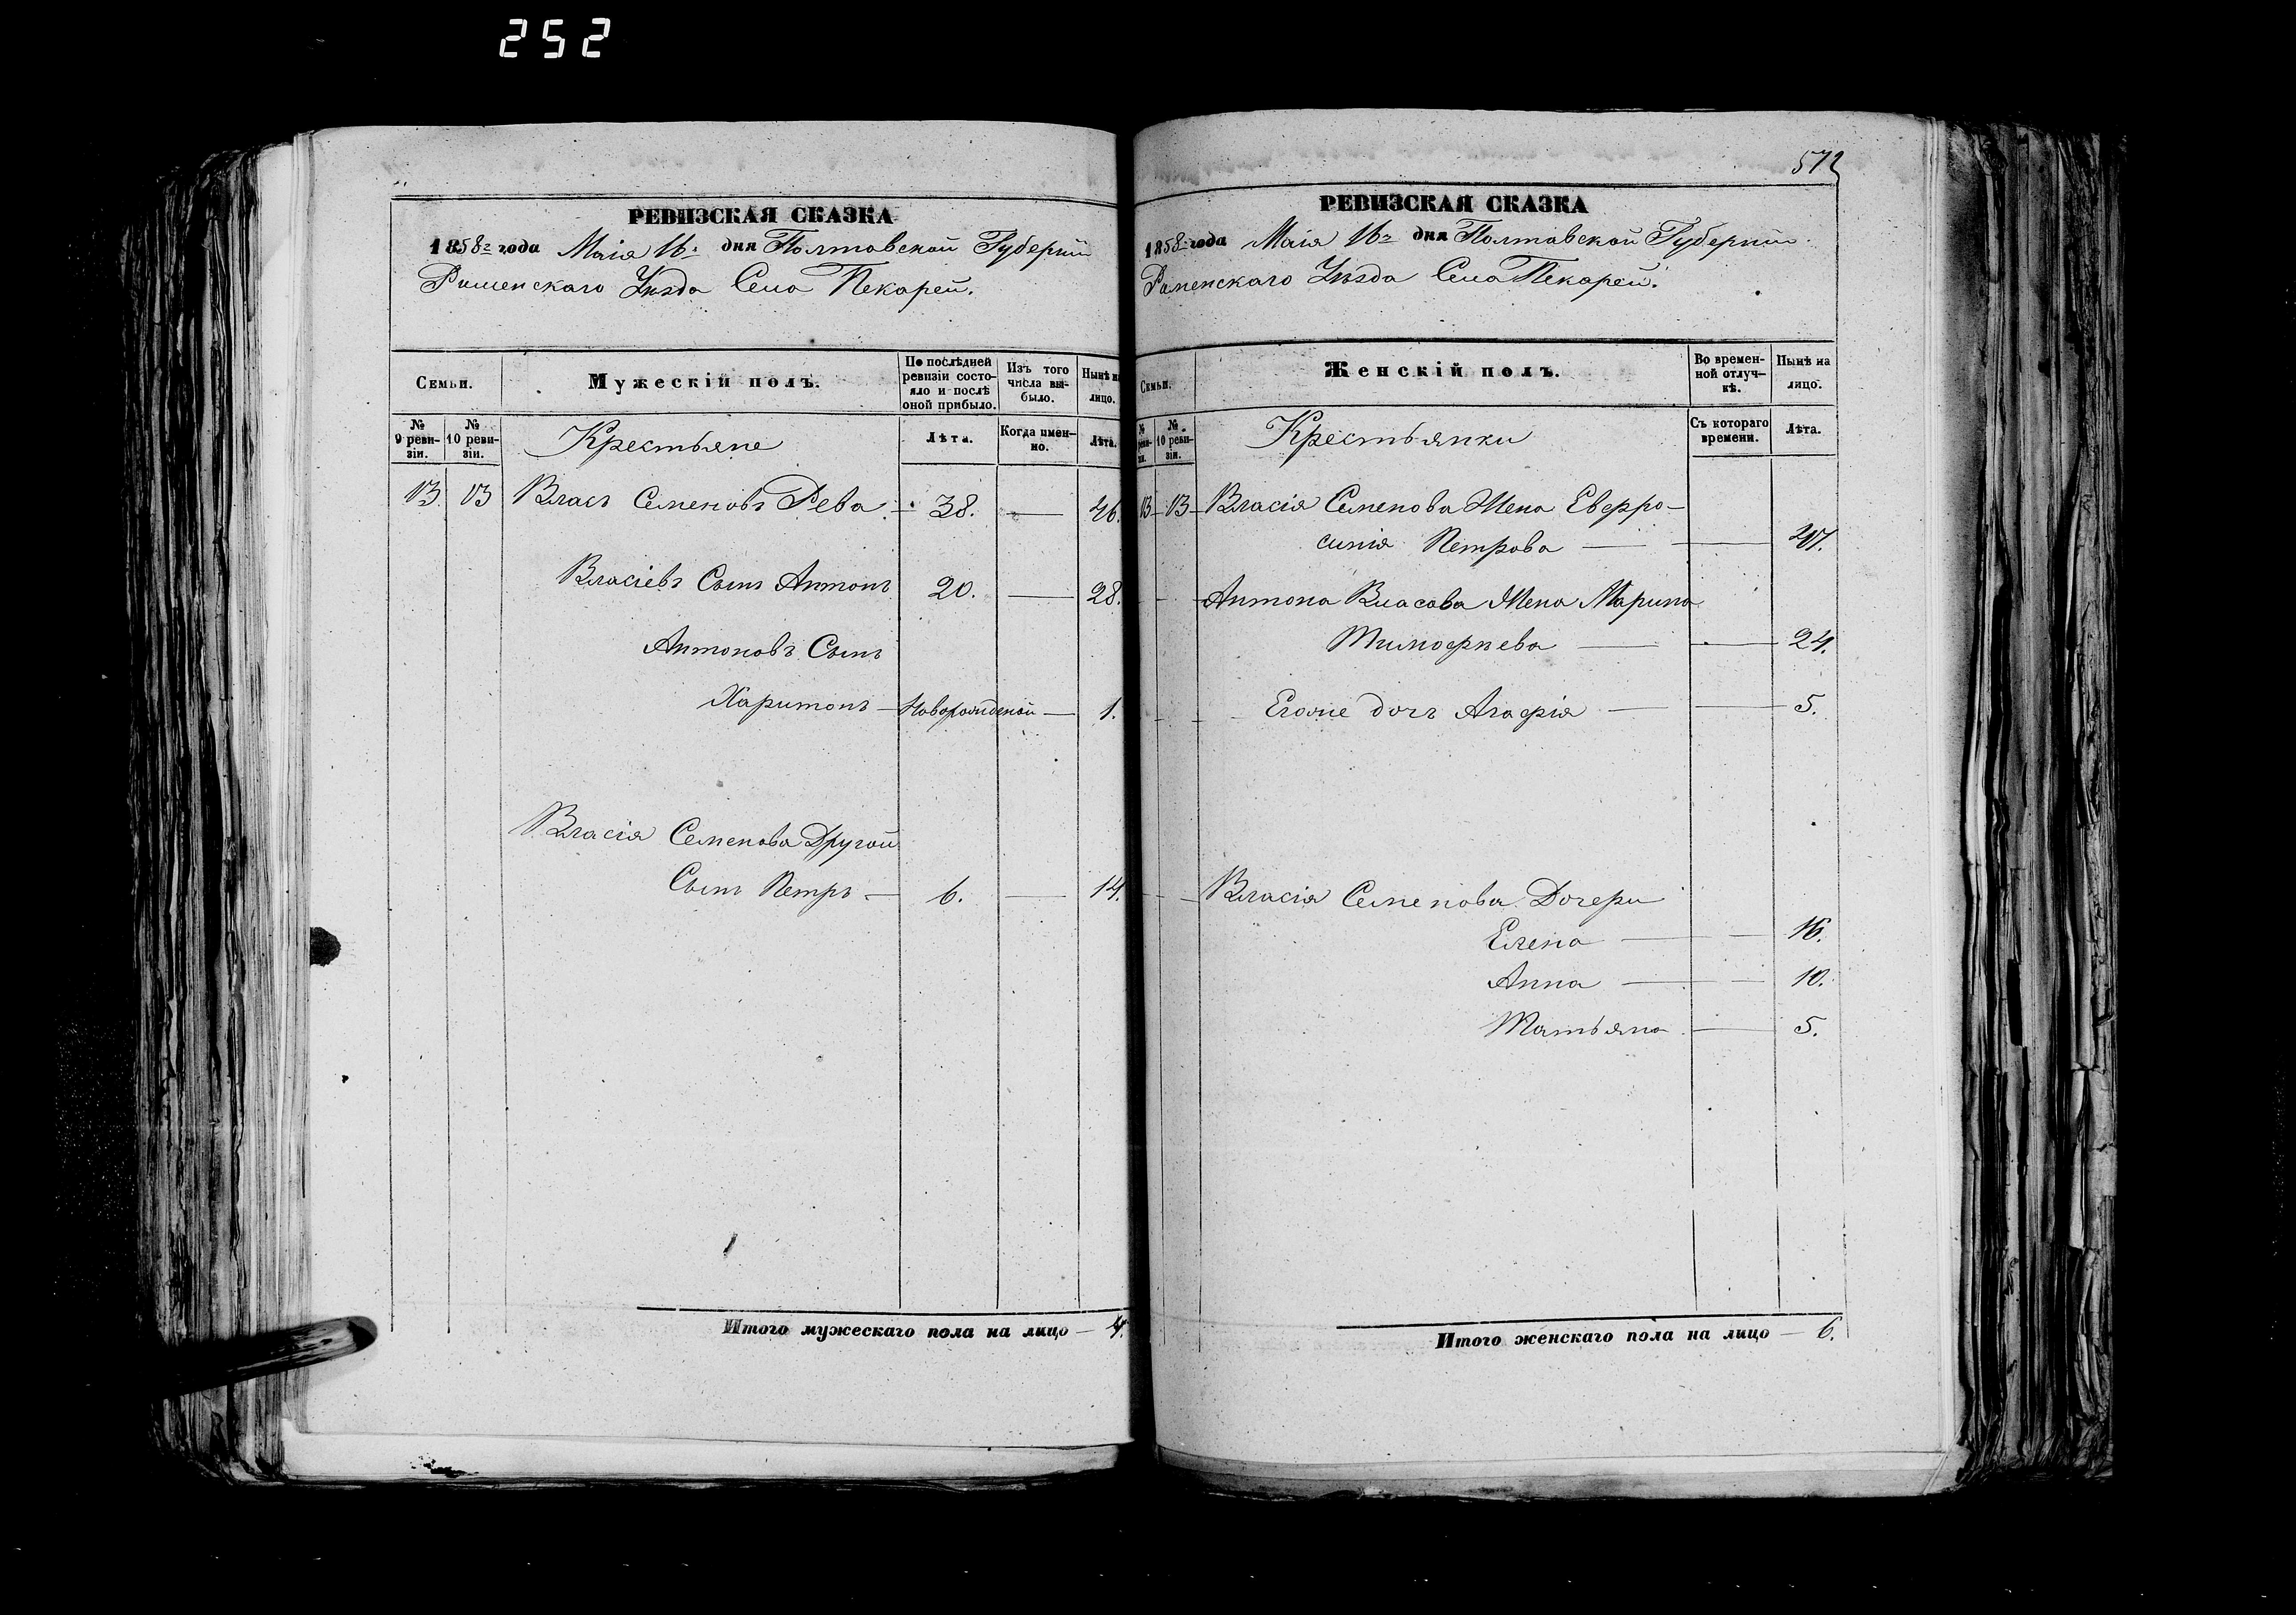 252
РЕВИЗСКАЯ СКАЗКА
1858го года Маія 16го дня Полтавской Губерніи
Роменскаго Уѣзда Села Пекарей.
Семьи.
Мужескій полъ.
По послѣдней ревизіи состояло и послѣ оной прибыло.
Изъ того числа выбыло.
Нынѣ на лицо.
№ 9 ревизіи.
№ 10 ревизіи.
Крестьяне
Лѣта.
Когда именно.
Лѣта.
13 13 Власъ Семеновъ Рева — 38. — 46.
Власіевъ Сынъ Антонъ 20. — 28.
Антоновъ Сынъ
Харитонъ — Новорожденой — 1.
Власія Семенова Другой
Сынъ Петръ — 6. — 14.
Итого мужескаго пола на лицо — 4.
572
РЕВИЗСКАЯ СКАЗКА
1858го года Маія 16го дня Полтавской Губерніи.
Роменскаго Уѣзда Села Пекарей.
Семьи.
Женскій полъ.
Во временной отлучкѣ.
Нынѣ на лицо.
№ 10 ревизіи.
Крестьянки
Съ котораго времени.
Лѣта.
13 — 13 — Власія Семенова Жена Евфро-
синія Петрова — —
Антона Власова Жена Марина
Тимофѣева — — 24.
Егоже дочь Агафія — — 5.
Власія Семенова Дочери
Елена — — 16.
Анна — — 10.
Татьяна — 5.
Итого женскаго пола на лицо — 6.